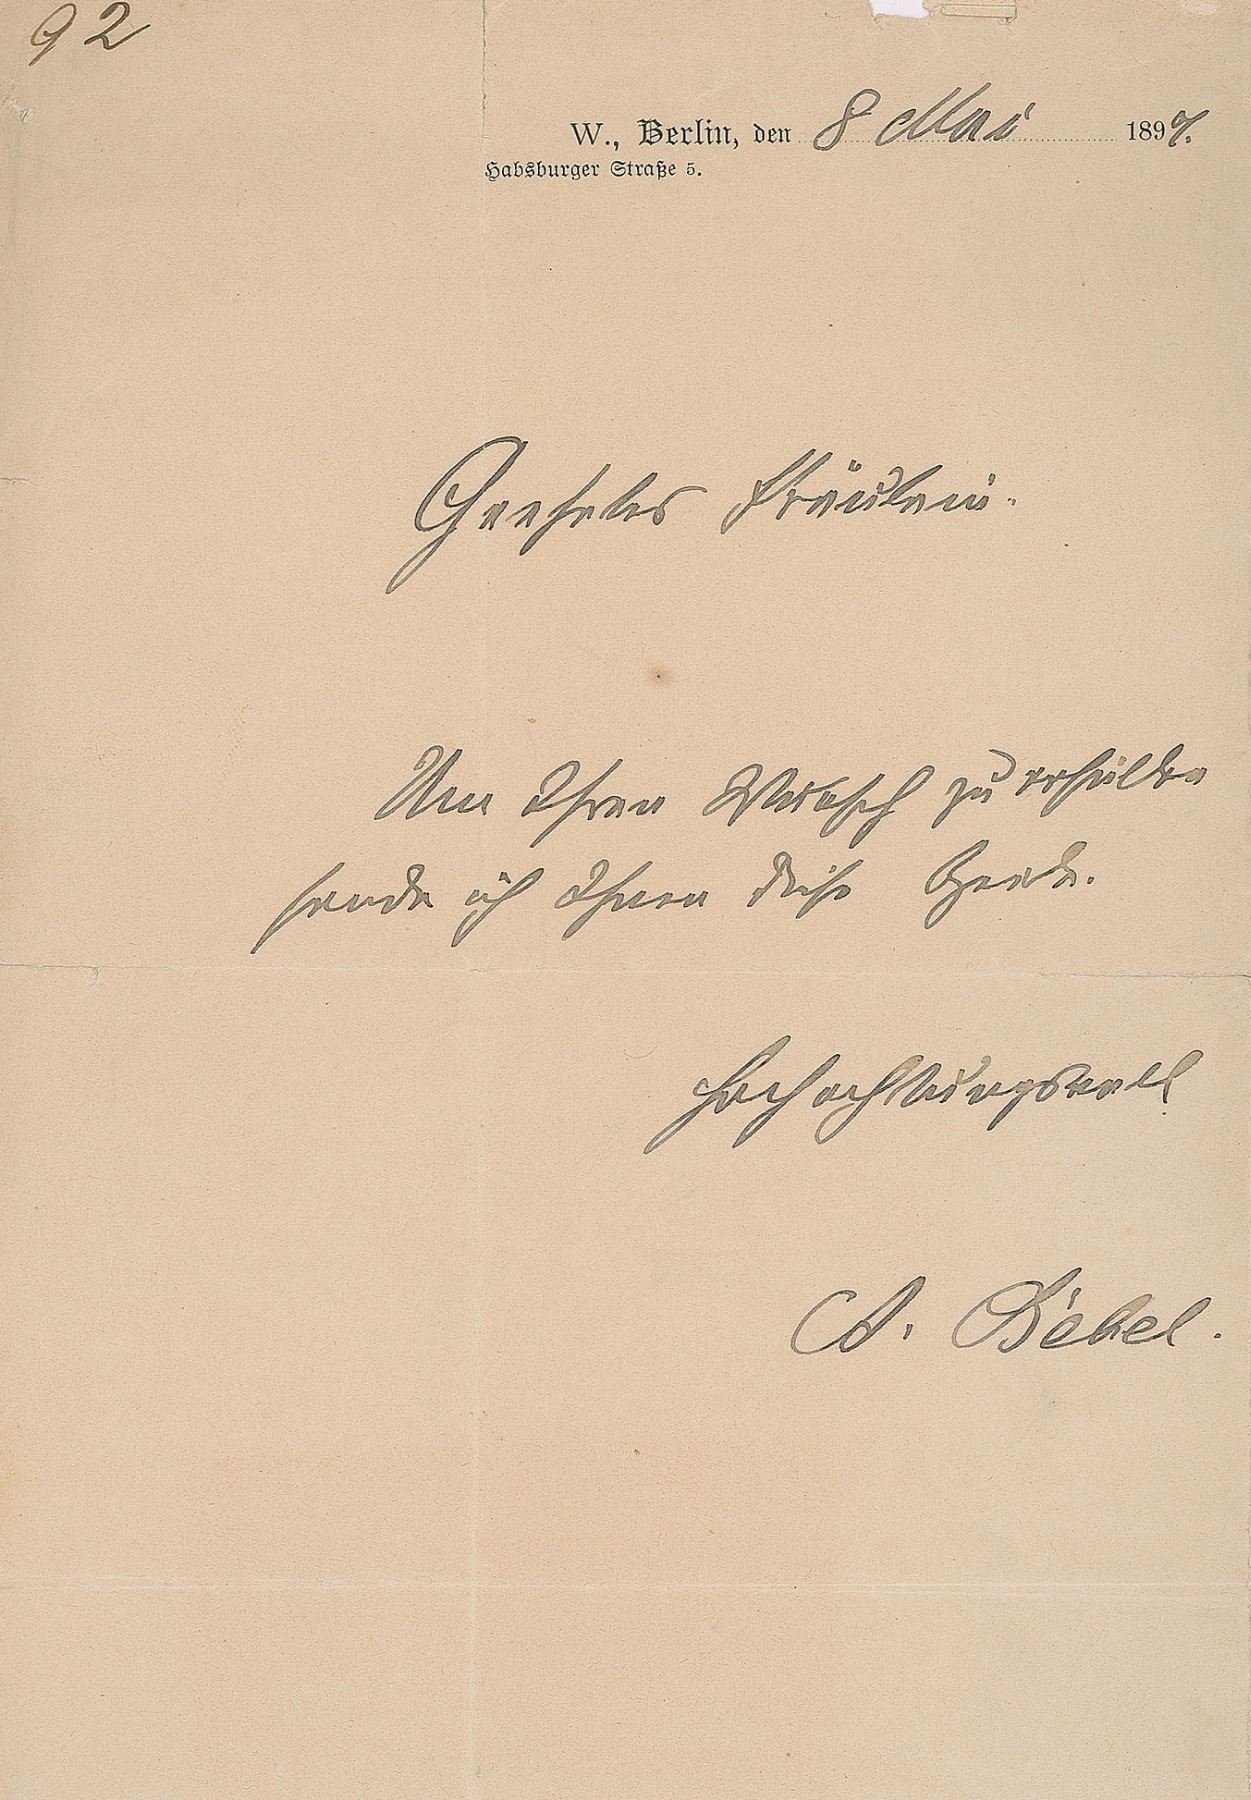 92
W., Berlin, den 8 Mai 1897.
Habsburger Straße 5.
Geehrtes Fräulein.
Um Ihren Wunsch zu erfüllen
sende ich Ihnen diese Zeile.
Hochachtungsvoll
A. Bebel.